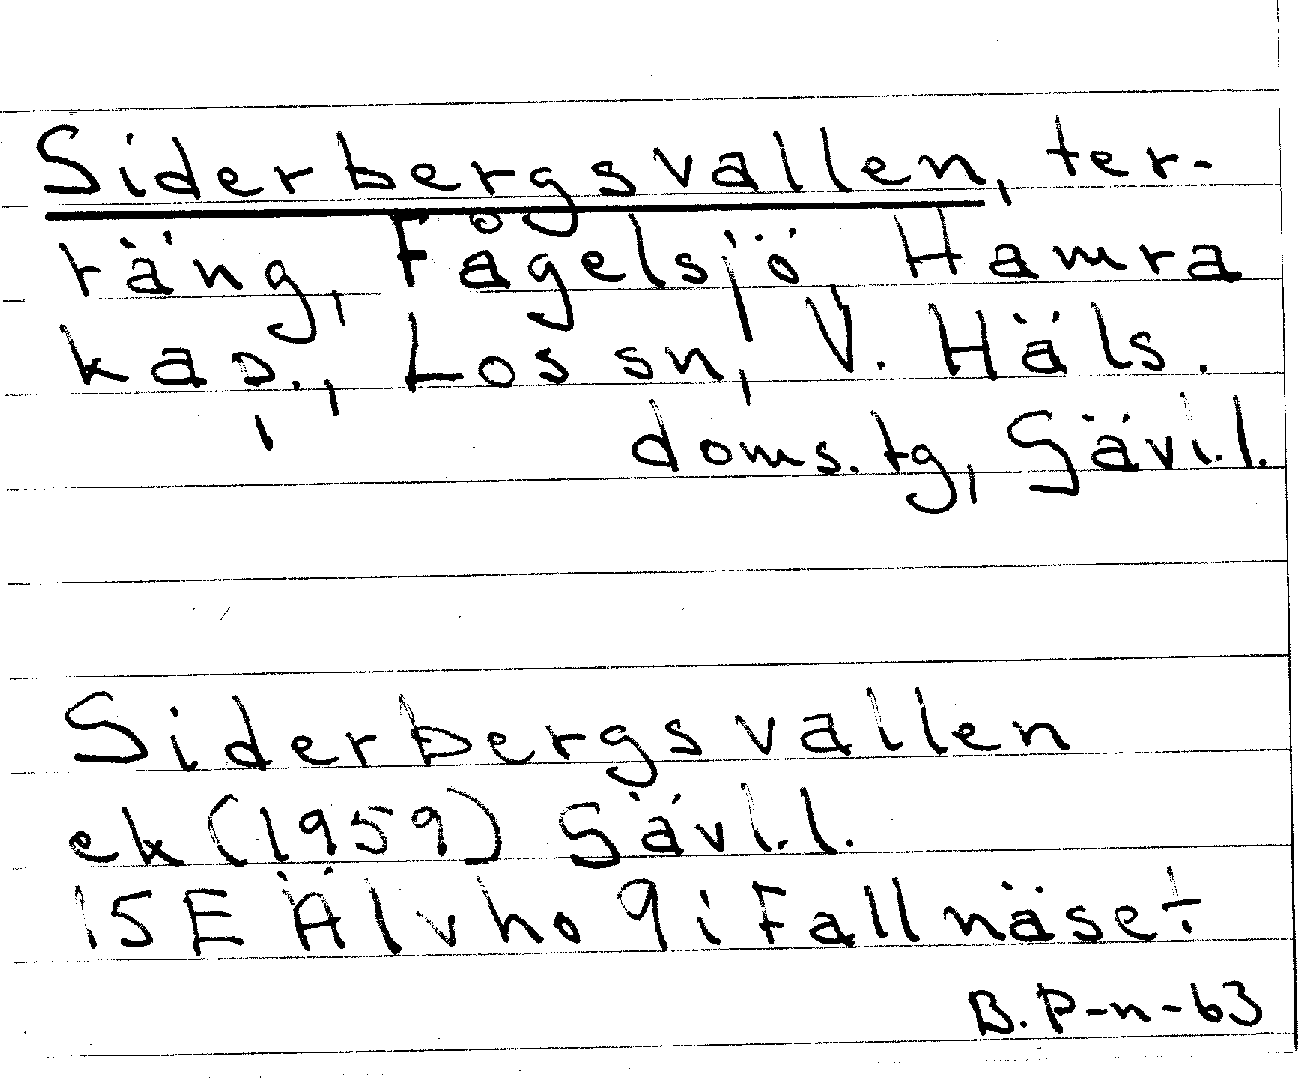 Siderbergsvallen, ter-
räng, Fågelsjö, Hamra
kap., Los sn, V. Häls.
doms.tg, Gävl.l.
Siderbergsvallen
ek (1959) Gävl.l.
15E Älvho 9i Fallnäset
B.P-n-63